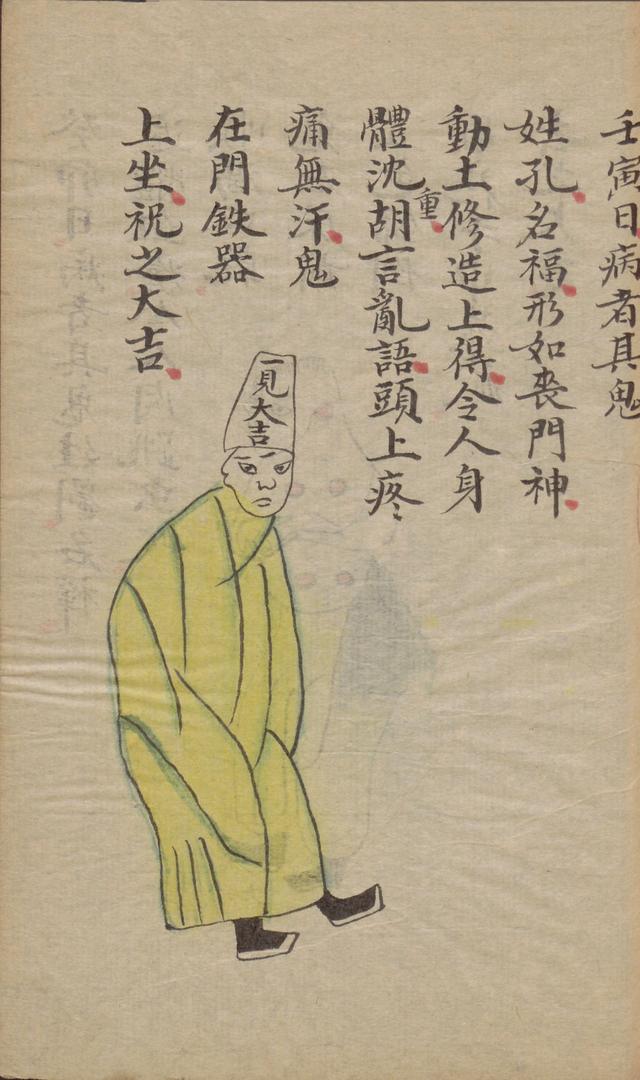 壬寅日病者其鬼
姓孔名福形如丧門神
動土修造上得令人身
體沈重胡言亂語頭上疼
痛無汗鬼
在門鉄器
上坐祝之大吉
一見大吉